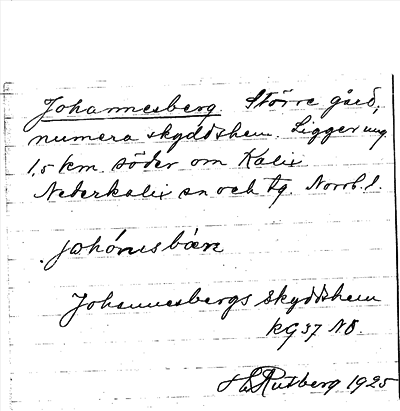 Johannesberg. Större gård,
numera skyddshem. Ligger ung.
1,5 km. söder om Kalix
Nederkalix sn och tg. Norrb. l.
Johannesbergs skyddshem
KG 37 NO.
Rutberg 1925